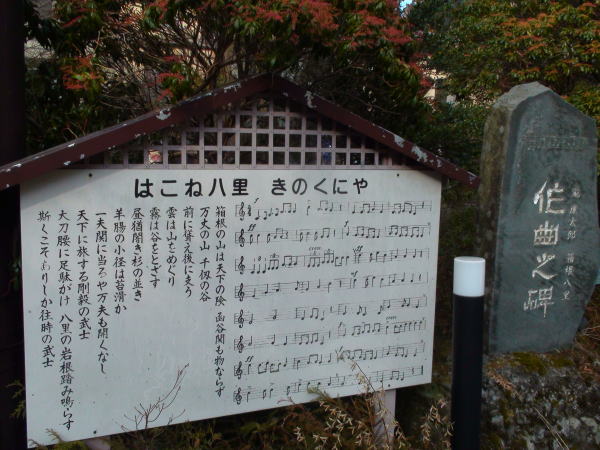 はこね八里 きのくにや
箱根の山は天下の険 函谷関も物ならず
万丈の山 千仭の谷
前に聳え後に支う
雲は山をめぐり
霧は谷をとざす
昼猶闇き杉の並き
羊腸の小径は苔滑か
一夫関に当るや万夫も開くなし
天下に旅する剛毅の武士
大刀腰に足駄がけ 八里の岩根踏み鳴らす
斯くこそありしか往時の武士
箱根八里
作曲之碑